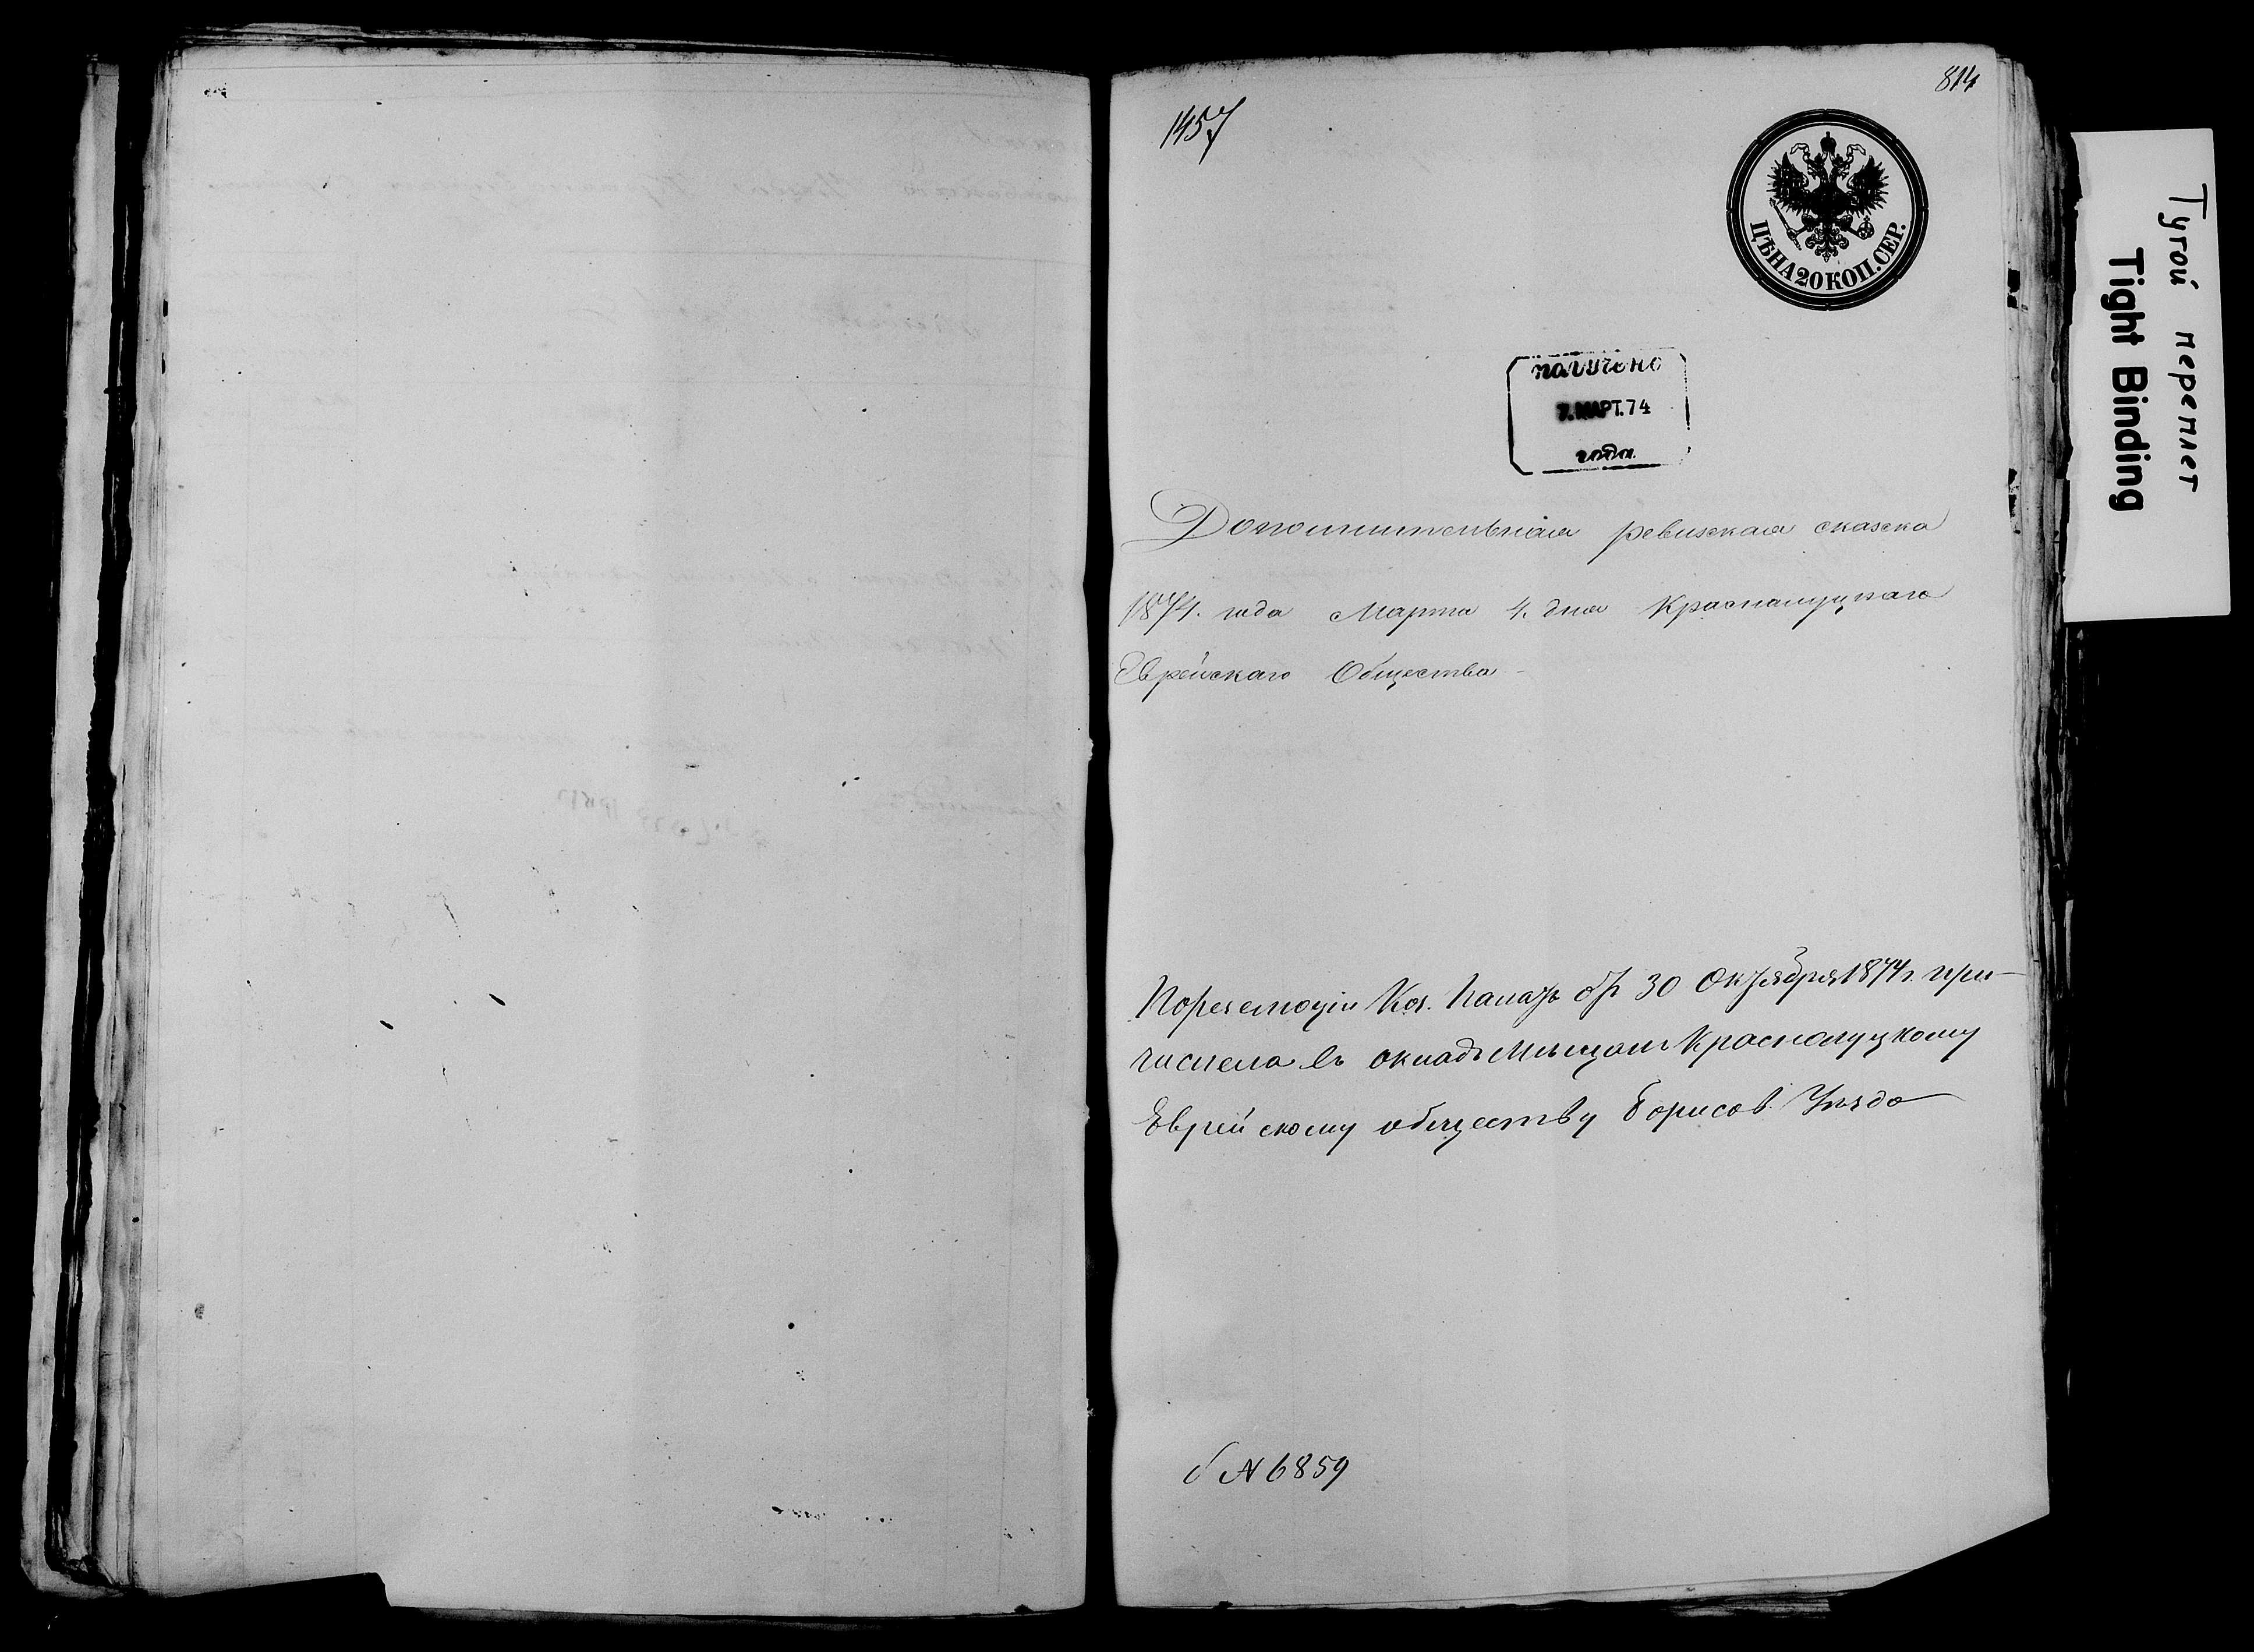 814
1457
ЦѢНА 20 КОП. СЕР.
получено
7. МАРТ. 74
года
Дополнительная ревизская сказка
1874. года Марта 4. дня Краснолуцкаго
Еврейскаго Общества
По резолюціи Каз. Палаты от 30 Октября 1874 г. при-
числена въ окладъ мещанъ Краснолуцкому
Еврейскому обществу Борисов. Уѣзда
N 6859
Тугой переплет
Tight Binding